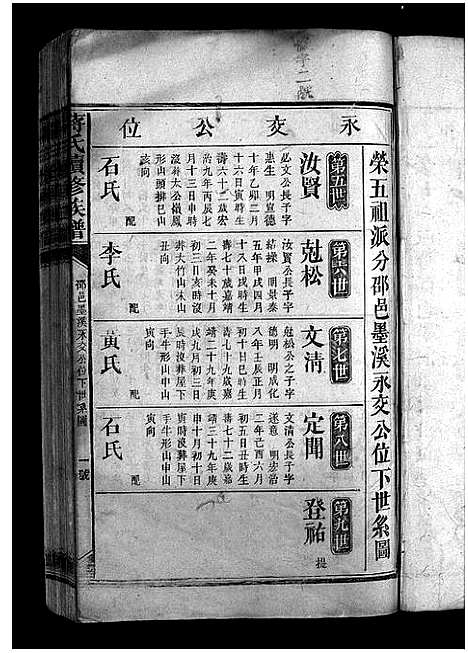 榮五祖派分邵邑墨溪永交公位下世系圖
永交公位
第五世
汝賢
必文公長子字
惠生 明宣德
十年乙卯二月
十六日寅時生
壽六十二歲宏
治九年丙辰七
月十三日申時
沒葬太公嶺鳳
形山頭排巳山
亥向
配
石氏
第六世
尅松
汝賢公長子字
結操 明景泰
五年甲戌四月
十八日戌時生
壽七十歲嘉靖
二年癸未十月
初三日亥時沒
葬大竹山未山
丑向
配
李氏
第七世
文清
尅松公之子字
德明 明成化
八年壬辰正月
初十日巳時生
壽七十九歲嘉
靖二十九年庚
戌九月初三日
辰時沒葬屋下
手牛形山申山
寅向
配
黃氏
第八世
定開
文清公長子字
遂意 明宏治
二年己酉六月
初五日丑時生
壽七十二歲嘉
靖三十九年庚
申十月初十日
寅時沒葬屋下
手牛形山申山
寅向
配
石氏
第九世
登祐
提
蔣氏續修族譜
邵邑墨溪永交公位下世系圖
一號